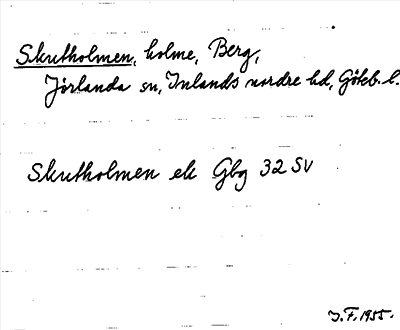 Skutholmen, holme, Berg,
Jörlanda sn, Inlands nordre hd, Göteb. l.
Skutholmen ek Gbg 32 SV
J. F. 1955.